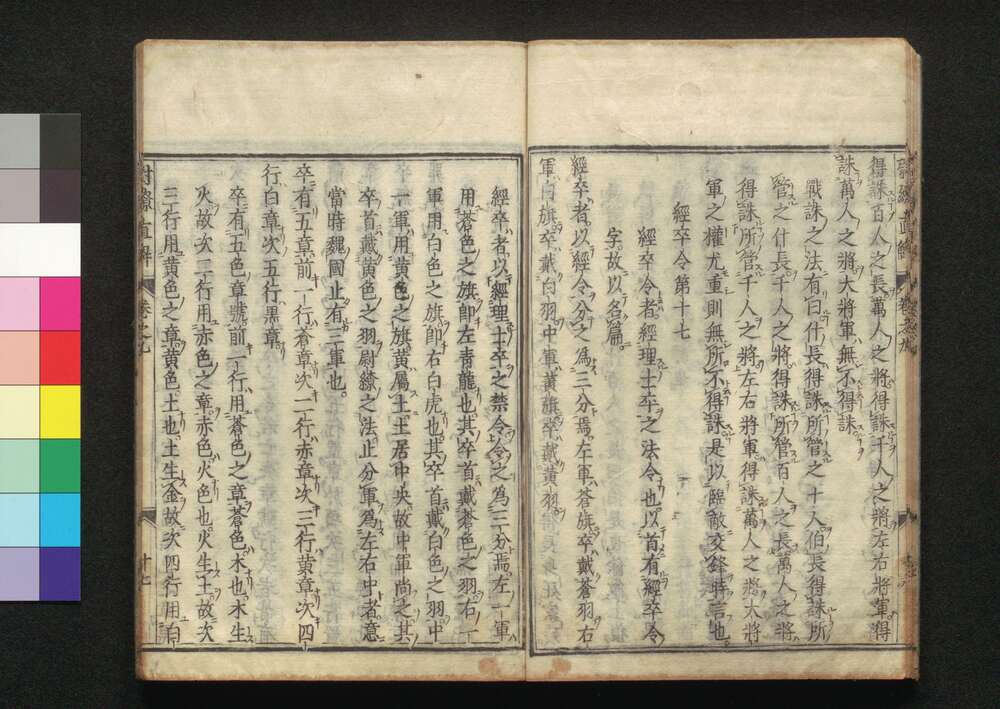 得誅百人之長萬人之將得誅千人之將左右將軍得
誅萬人之將大將軍無不得誅
戰誅之法有曰什長得誅所管之十人伯長得誅所
管之什長千人之將得誅所管百人之長萬人之將
得誅所管千人之將左右將軍得誅萬人之將大將
軍之權尤重則無所不得誅是以臨敵交鋒時言也
經卒令第十七
經卒令者經理士卒之法令也以首有經卒令
字故以名篇
經卒者以經令分之為三分焉左軍蒼旗卒戴蒼羽右
軍白旗卒戴白羽中軍黃旗卒戴黃羽
經卒者以經理士卒之禁令令之為三分焉左一軍
用蒼色之旗即左青龍也其卒首戴蒼色之羽右一
軍用白色之旗即右白虎也其卒首戴白色之羽中
一軍用黃色之旗黃屬土土居中央故中軍尚之其
卒首戴黃色之羽尉繚之法止分軍為左右中者意
當時魏國止有三軍也
卒有五章前一行蒼章次二行赤章次三行黃章次四
行白章次五行黑章
卒有五色章號前一行用蒼色之章蒼色木也木生
火故次二行用赤色之章赤色火色也火生土故次
三行用黃色之章黃色土也土生金故次四行用白
尉繚直解 卷之九 十七